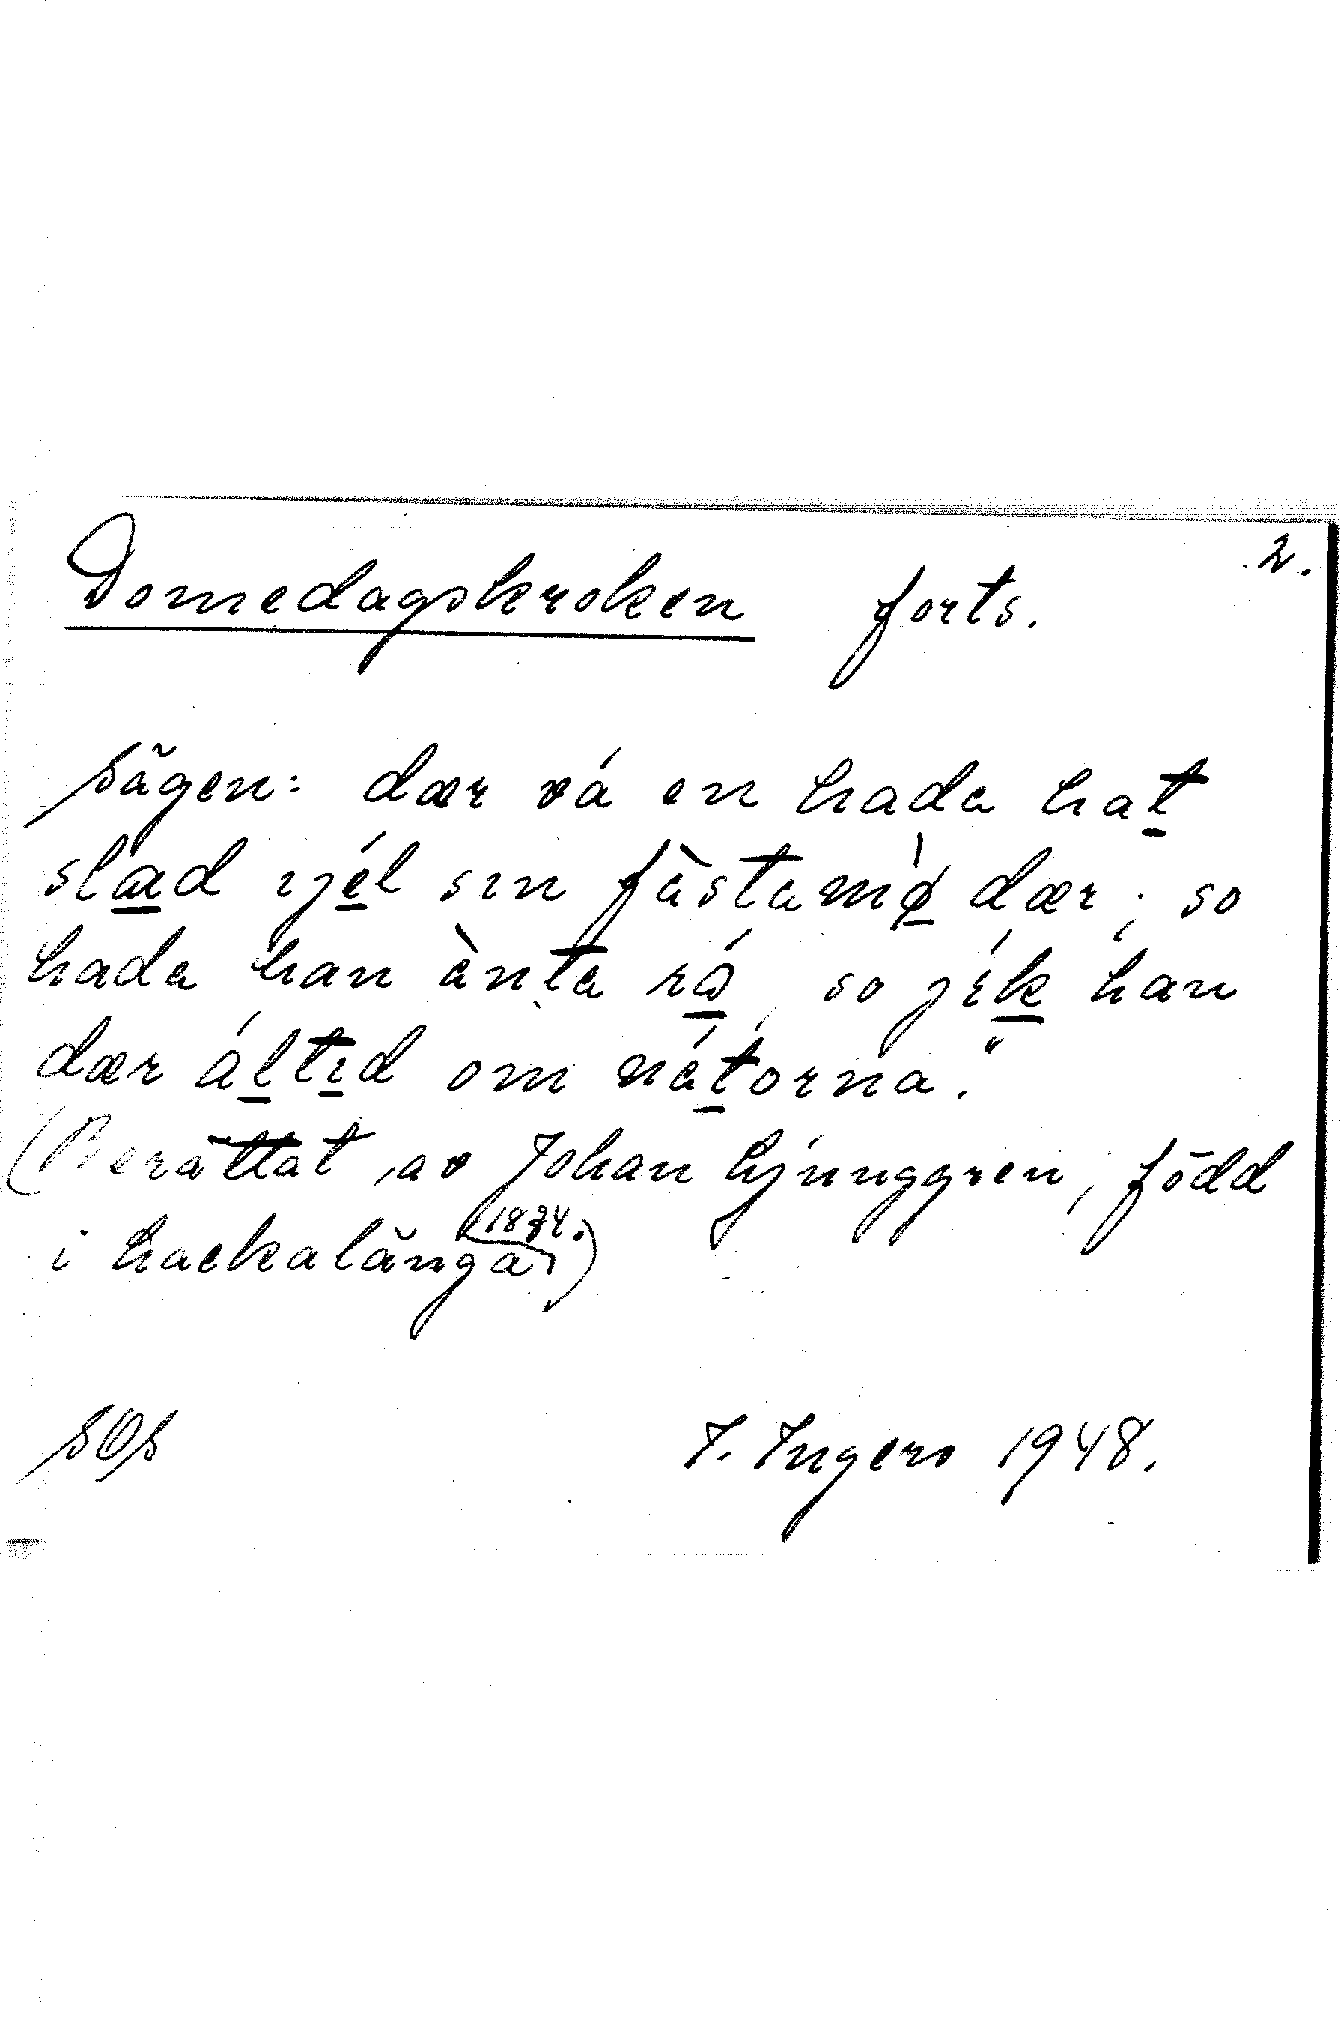 2.
Domedagskroken forts.
Sägen: dær vá en hada hat
slæd ijél sin fàstamø̀ dær; so
hada han ènta rá, so jék han
dær áltid om nátorna."
(Berättat av Johan Ljunggren, född
i Hackalänga 1874.)
SOS
I. Ingers 1948.